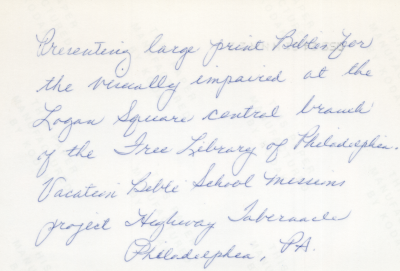 Presenting large print Bibles for
the visually impaired at the
Logan Square central branch
of the Free Library of Philadelphia.
Vacation Bible School missions
project Highway Tabernacle
Philadelphia, PA.